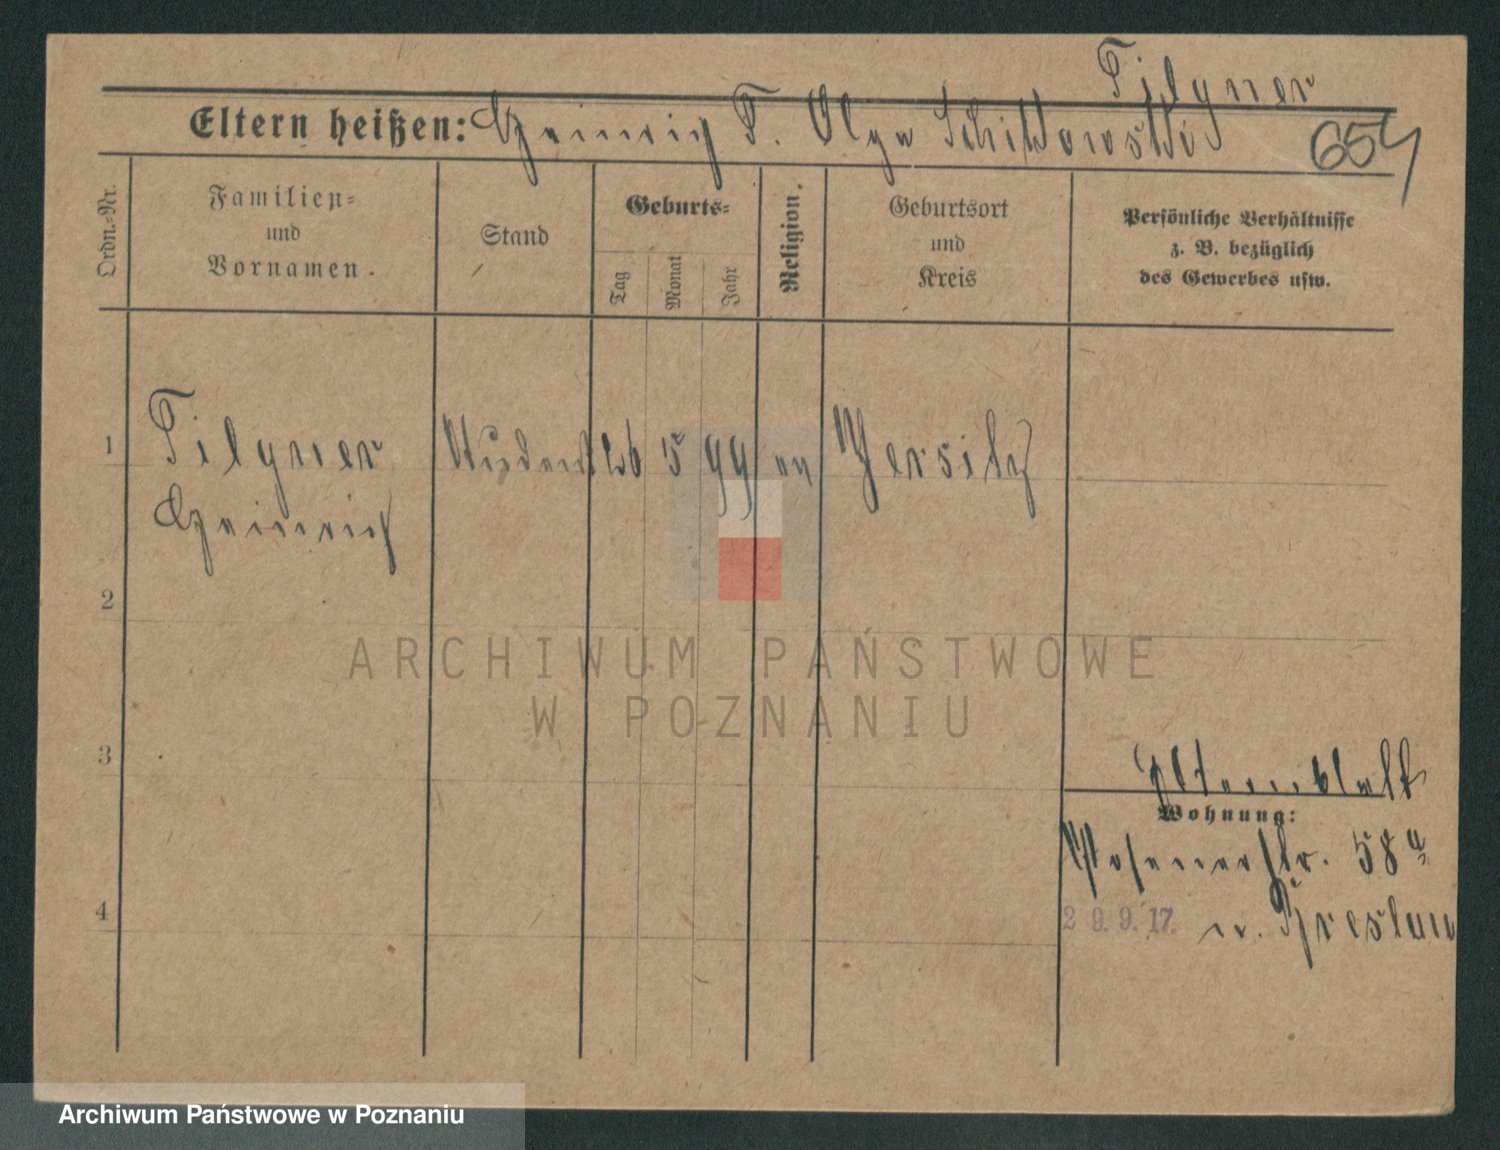 Tilgner
Eltern heißen: Heinrich T. Olga Schittowski
654
Ordn.-Nr.
Familien-
und
Vornamen.
Stand
Geburts-
Tag
Monat
Jahr
Religion.
Geburtsort
und
Kreis
Persönliche Verhältnisse
z. B. bezüglich
des Gewerbes usw.
1 Tilgner Student 26 5 99 ev Jersitz
Heinrich
2
3
4
Elternblatt
Wohnung:
Posenerstr. 58a
29.9.17. n. Breslau
ARCHIWUM PAŃSTWOWE
W POZNANIU
Archiwum Państwowe w Poznaniu